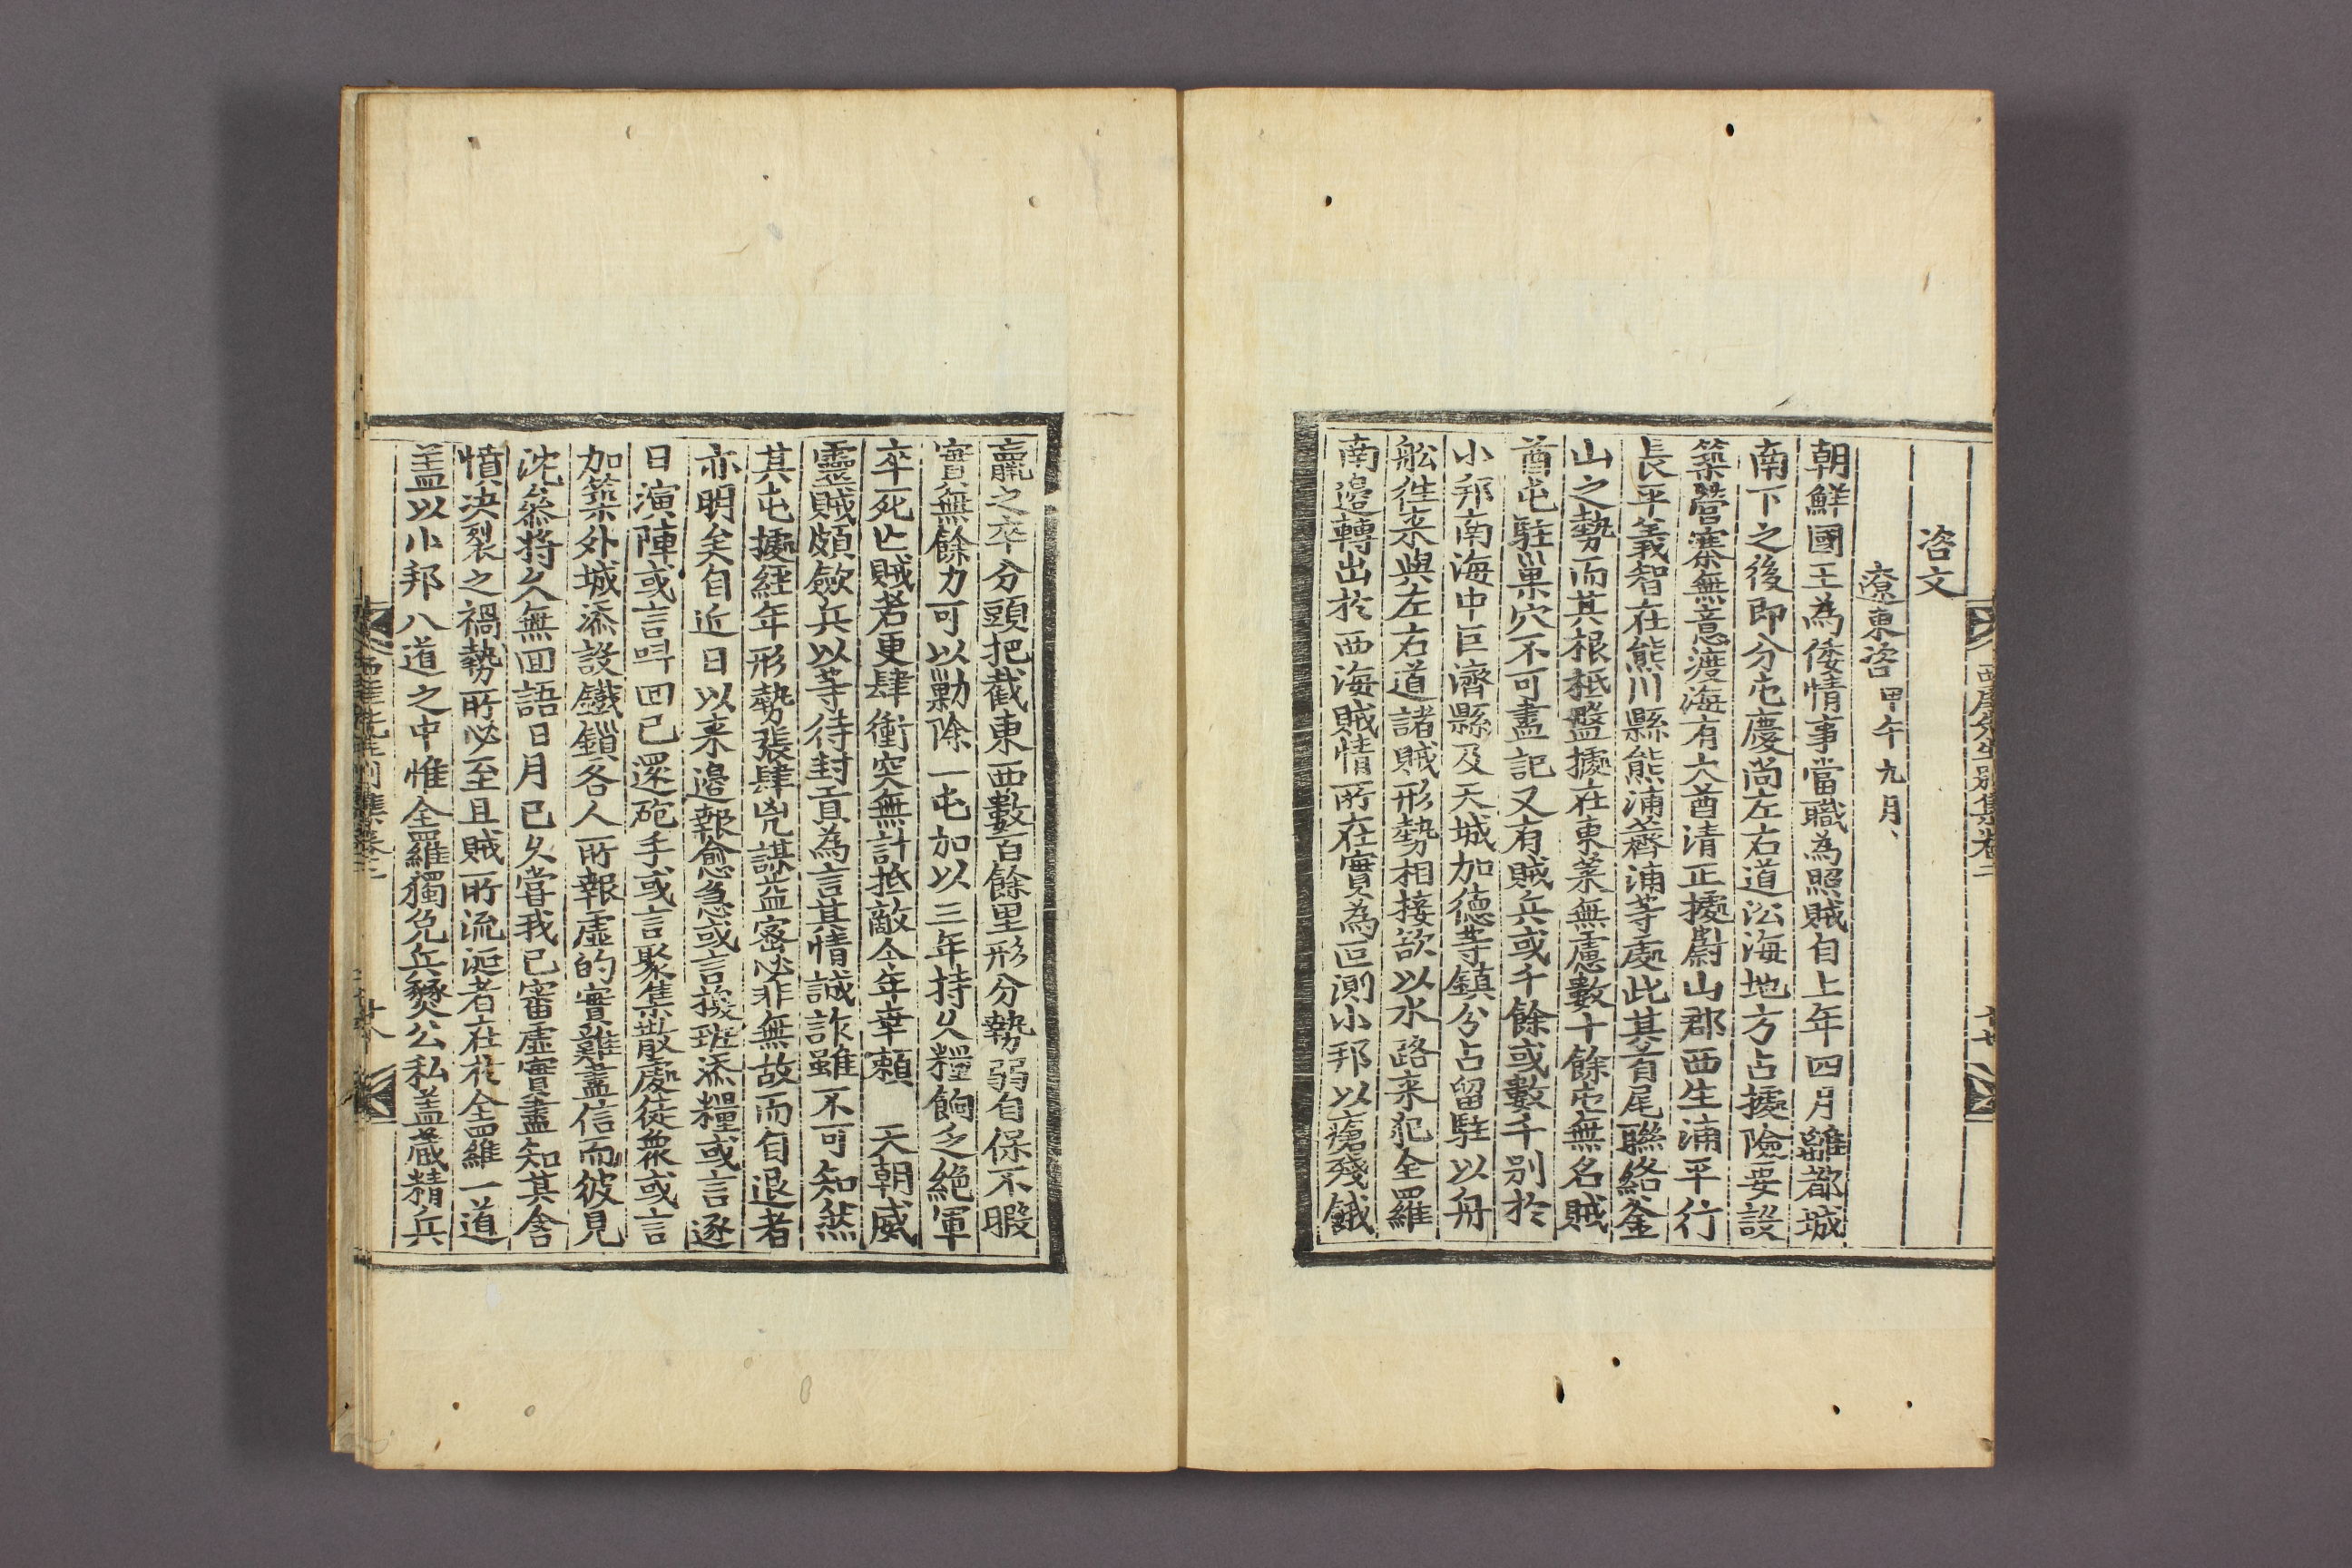 咨文
遼東咨 甲午九月
朝鮮國王為倭情事當職為照賊自上年四月離都城
南下之後即分屯慶尚左右道沿海地方占據險要設
築營寨無意渡海有大酋清正據蔚山郡西生浦平行
長平義智在熊川縣熊浦薺浦等處此其首尾聯絡釜
山之勢而其根柢盤據在東萊無慮數十餘屯無名賊
酋屯駐巢穴不可盡記又有賊兵或千餘或數千別於
小邦南海中巨濟縣及天城加德等鎮分占留駐以舟
舩徃来與左右道諸賊形勢相接欲以水路来犯全羅
南邊轉出於西海賊情所在實為叵測小邦以瘡殘餓
羸之卒分頭把截東西數百餘里形分勢弱自保不暇
實無餘力可以勦除一屯加以三年持久糧餉乏絶軍
卒死亡賊若更肆衝突無計抵敵今年幸賴 天朝威
靈賊頗歛兵以等待封貢為言其情誠詐雖不可知然
其屯據經年形勢張肆兇謀益密必非無故而自退者
亦明矣自近日以来邊報愈急或言撥班添糧或言逐
日演陣或言呌回已還砲手或言聚集散處徒衆或言
加築外城添設鐵鎖各人所報虛的實難盡信而彼見
沈叅将久無回語日月已久嘗我已審虛實盡知其舍
憤決裂之禍勢所必至且賊所流涎者在於全羅一道
盖以小邦八道之中惟全羅獨免兵燹公私盖藏精兵
西厓先生別集卷二